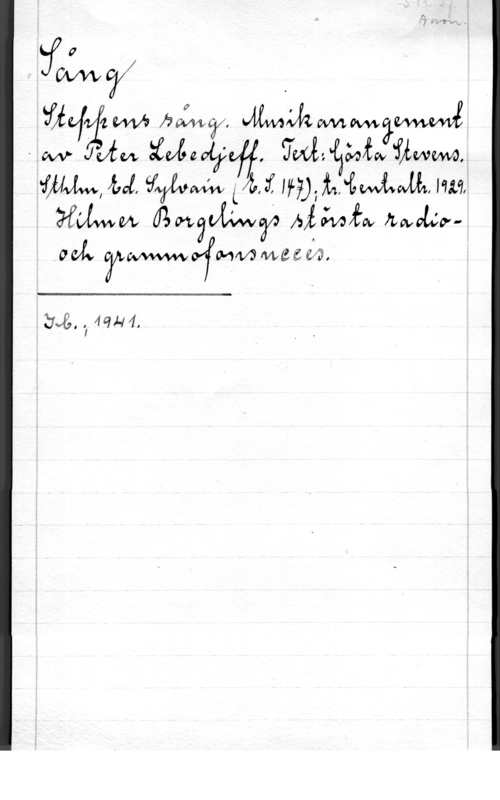 Anon.
Sång
Steppens sång. Musikarrangement
av Peter Lebedjeff. Text: Gösta Stevens.
Sthlm, Ed. Sylvain (E.S. 147); tr. Centraltr. 1929.
Hilmer Borgelings största radio-
och grammofonsuccés.
J.b.; 1941.